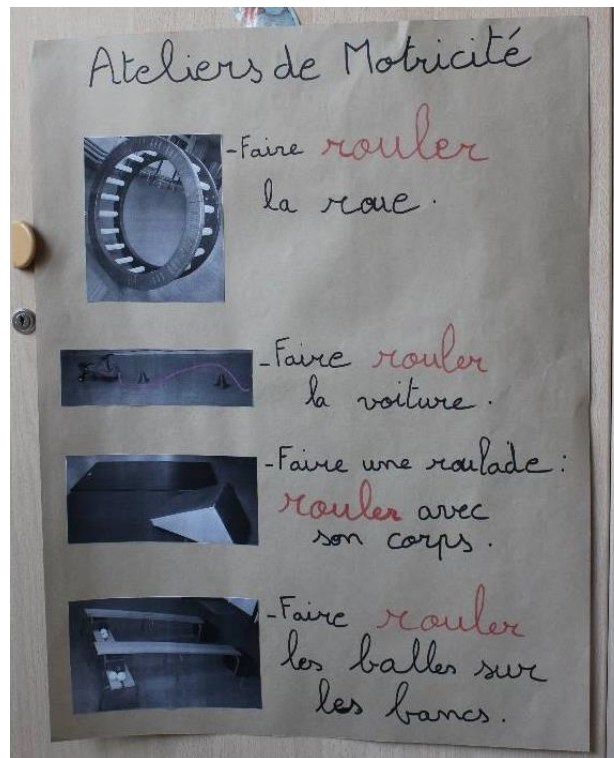 Ateliers de Motricité
- Faire rouler
la roue.
- Faire rouler
la voiture.
- Faire une roulade :
rouler avec
son corps.
- Faire rouler
les balles sur
les bancs.